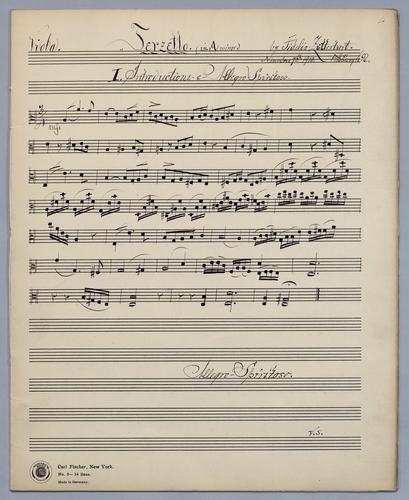 Viola. Terzetto. (in A minor) by Fidelio Zitterbart.
November 1910. Pittsburgh, Pa.
I. Introduction e Allegro Spiritoso.
Allegro Spiritoso.
V.S.
Carl Fischer, New York.
No. 5— 14 lines.
Made in Germany.